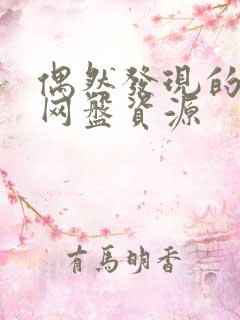 偶然發現的
网盤資源
有馬明香